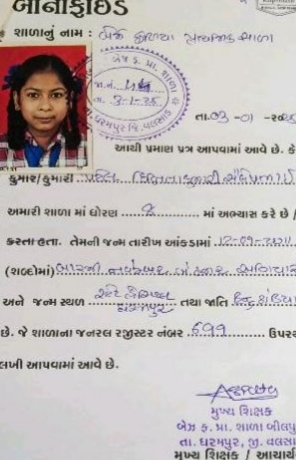 બોનાફાઇડ
શાળાનું નામ : બેઝ ફળિયા પ્રાથમિક શાળા
બેઝ ફ. પ્રા. શાળા
જા.નં.
તા. 3-1-25
તા.ધરમપુર જિ.વલસાડ
તા.03 -01 -૨૦૨
આથી પ્રમાણ પત્ર આપવામાં આવે છે. કે
કુમાર/કુમારી પટેલ
અમારી શાળા માં ધોરણ ....8.... માં અભ્યાસ કરે છે /
કરતા હતા. તેમની જન્મ તારીખ આંકડામાં 12-09-2011
(શબ્દોમાં)
અને જન્મ સ્થળ સ્ટેટ હોસ્પિટલ તથા જાતિ હિન્દુ
ધરમપુર
છે. જે શાળાના જનરલ રજીસ્ટર નંબર 599 ઉપર
લખી આપવામાં આવે છે.
મુખ્ય શિક્ષક
બેઝ ફ. પ્રા. શાળા બીલપુ
તા. ધરમપુર, જી. વલસા
મુખ્ય શિક્ષક / આચાર્ય